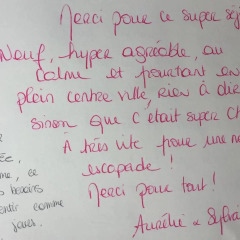 Merci pour ce super séj
Neuf, hyper agréable, au
calme et pourtant en
plein centre ville, rien à dire
sinon que c'était super Ch
A très vite pour une n
escapade !
Merci pour tout !
Aurélie &
me, ce
besoins
entir comme